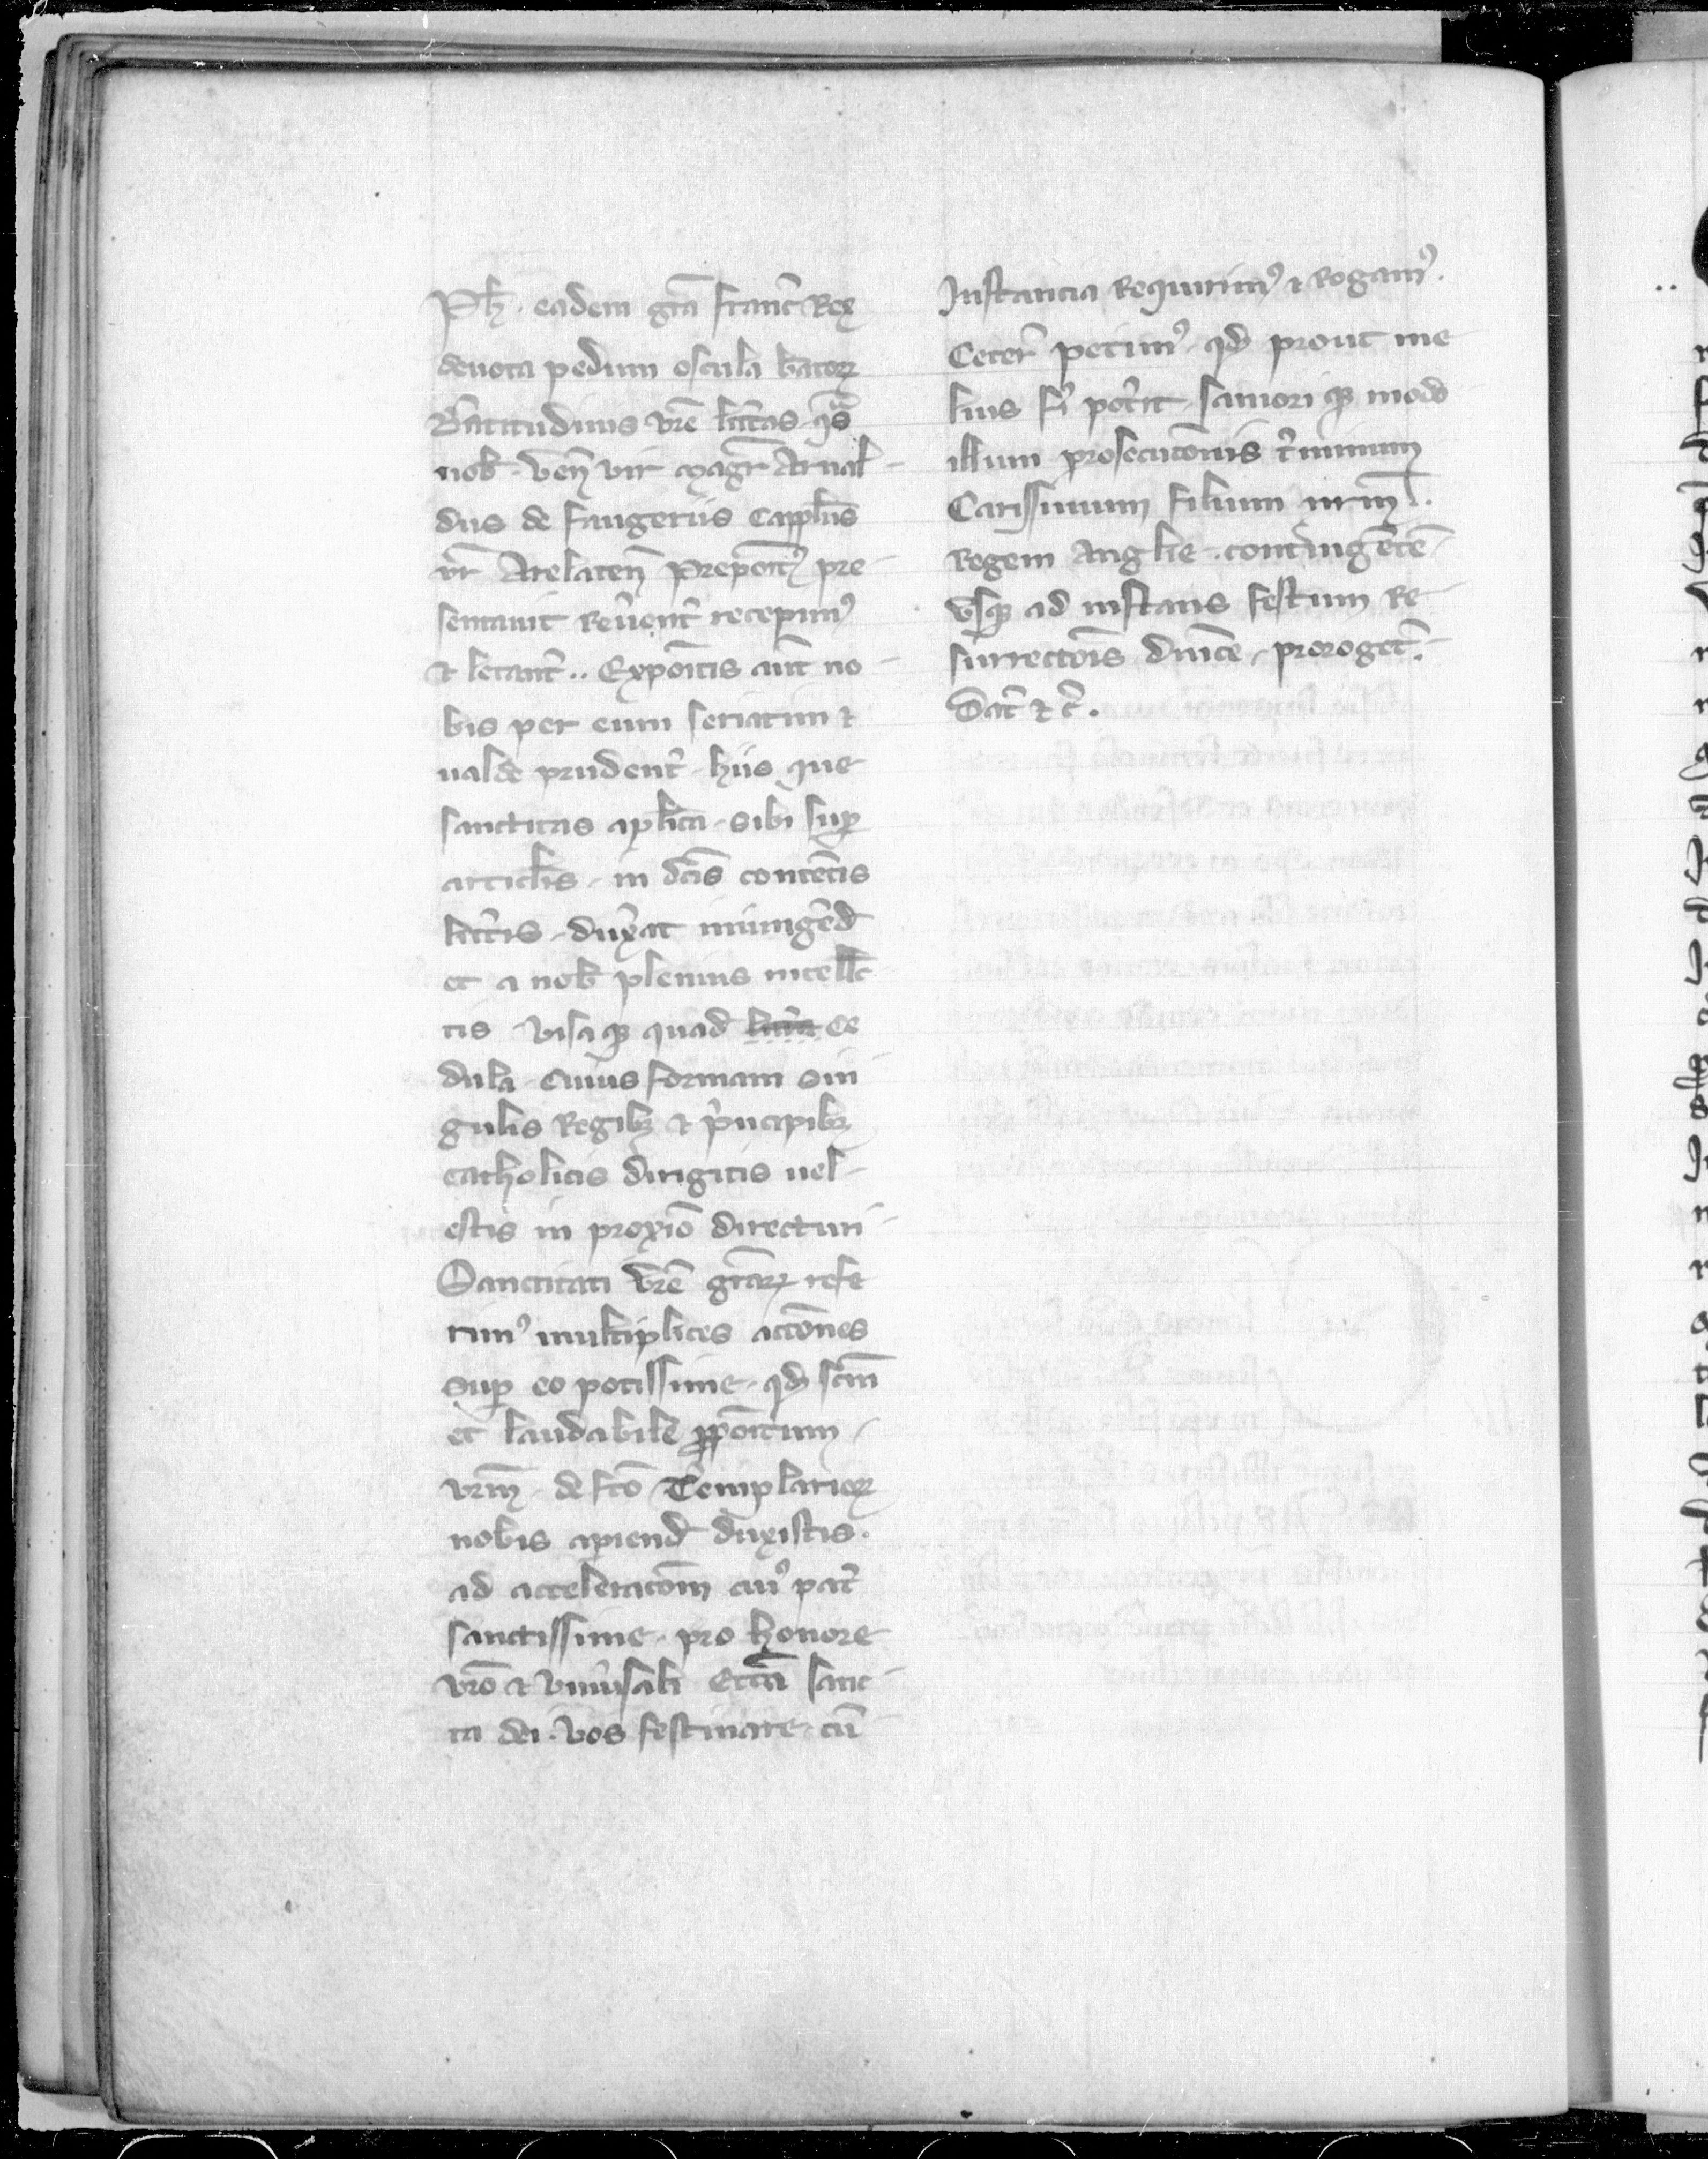 Ph̅. eadem gr̅a franc̉ Rex
deuota pedum oscula b̅ator̄ꝝ
B̅atitudinis vr̅e litt̅as. q̅s
nob̅. ven̅ vir mag̅r Arnal-
dus de faugeriis capp̅lus
vr̅ Arelaten̅ Prepoit̅ꝰ pre-
sentauit Reuent̉ recepimꝰ
⁊ letant̉.. Expoitis aut̅ no-
bis per eum seriatim ⁊
ualde prudent̉. hiis que
sanctitas ap̅lica. sibi sup̱
articl̅is. in dc̅is contẽtis
litt̉is. dux̉at iniungẽd̅
et a nob̅ plenius intell̅c
tis. visaqꝫ quad̅ litt̅a ce
dula. cuius formam sin
gulis Regibꝫ ⁊ p̉ncipibꝫ
catholicis dirigitis uel-
estis in prox̅io directuri-
Sanctitati vr̅e gr̅arꝝ refe
rimꝰ multiplices acc̅ones
Sup̱ eo potissime. qd̅ sc̅m
et laudabile ꝓpoitum
vr̅m. de fc̅o Templarioꝝ
nobis apiend̅ duxistis.
ad acceleratõm cuiꝰ pat̉
sanctissime. pro honore
vr̅o ⁊ vniủsali Ecc̅a sanc-
ta dei. vos festinare. cũ
Instancia Requirimꝰ ⁊ Rogamꝰ.
Ceter̉ petimꝰ. qd̅ prout me
lius fỉ pot̉it. saniori qꝫ modo
illum prosecuc̅onis t̉minum
Carissimum filium nr̅m ..
Regem Anglie. contingẽtẽ-
vsqꝫ ad instans festum Re-
surrect̅ois dn̅ice. prorogetꝛ.
Dat̉ ⁊ c̉.